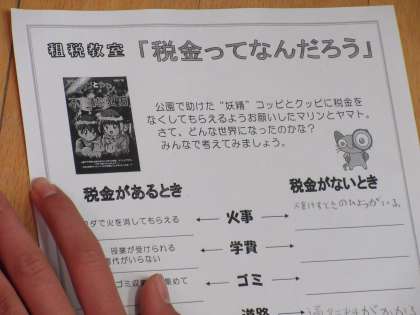 租税教室 「税金ってなんだろう」
公園で助けた“妖精”コッピとクッピに税金を
なくしてもらえるようお願いしたマリンとヤマト。
さて、どんな世界になったのかな？
みんなで考えてみましょう。
税金があるとき
税金がないとき
ダで火を消してもらえる
火事
火をけすときのひようがいる。
授業が受けられる
代がいらない
学費
ゴミ
集めて
道路